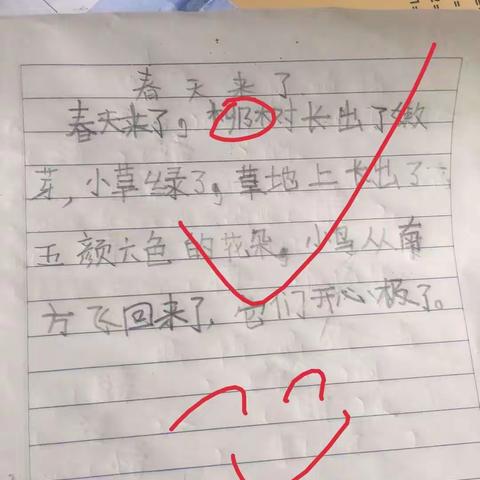 春天来了
春天来了，柳树长出了嫩
芽，小草绿了，草地上长出了
五颜六色的花朵，小鸟从南
方飞回来了，它们开心极了。